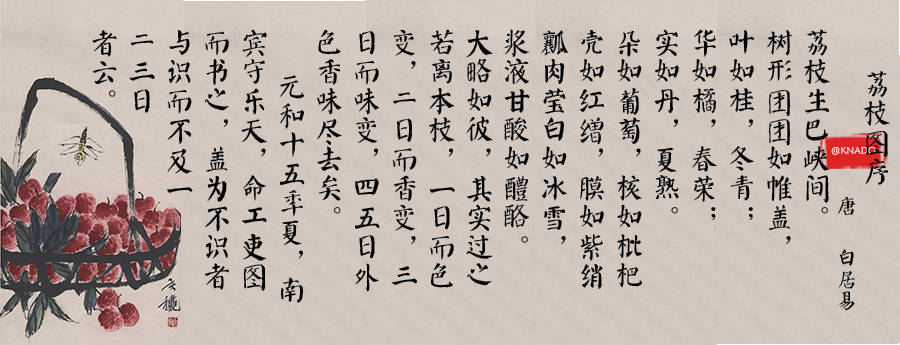 荔枝图序
@KNADO
唐 白居易
荔枝生巴峡间。
树形团团如帷盖，
叶如桂，冬青；
华如橘，春荣；
实如丹，夏熟。
朵如葡萄，核如枇杷
壳如红缯，膜如紫绡
瓤肉莹白如冰雪，
浆液甘酸如醴酪。
大略如彼，其实过之
若离本枝，一日而色
变，二日而香变，三
日而味变，四五日外
色香味尽去矣。
元和十五年夏，南
宾守乐天，命工吏图
而书之，盖为不识者
与识而不及一
二三日
者云。